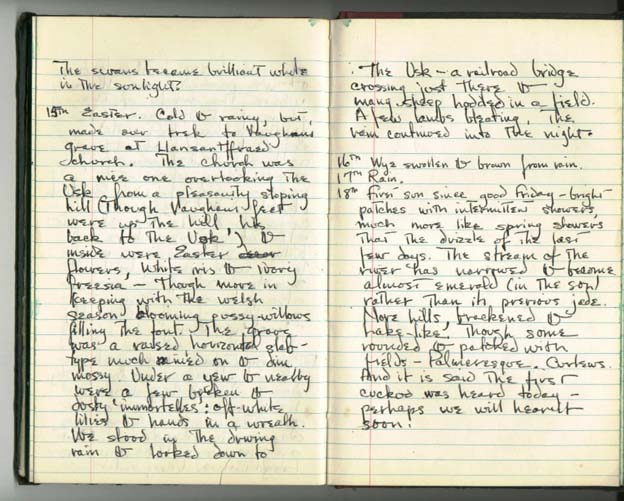 The swans became brilliant white
in the sunlight.
15th Easter. Cold & rainy, but
made our trek to Vaughans
grave at Llansantffraed
church. The church was
a nice one overlooking the
Usk from a pleasantly sloping
hill (though Vaughans feet
were up the hill, his
back to the Usk,) &
inside were Easter
flowers, White iris & ivory
freesia – though more in
keeping with the welsh
season blooming pussy-willows
filling the font. The grave
was a raised horizontal slab-
type much rained on & dim
mossy. Under a yew & nearby
were a few broken &
dusty 'immortelles': off-white
lilies & hands in a wreath.
We stood in the driving
rain & looked down to
The Usk – a railroad bridge
crossing just there &
many sheep hodded in a field.
A few lambs bleating. The
rain continued into the night.
16th Wye swollen & brown from rain.
17th Rain.
18th First sun since good Friday – bright
patches with intermitten showers,
much more like spring showers
that the drizzle of the last
few days. The stream of the
river has narrowed & become
almost emerald (in the sun)
rather than its previous jade.
More hills, brackened &
rake-like, though some
rounded & patched with
fields – Palmeresque. Curlews.
And it is said the first
cuckoo was heard today –
perhaps we will hear it
soon!